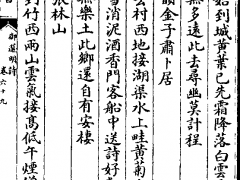 始到城黄葉已先霜降落白雲
無多遠此去尋幽莫計程
金子肅卜居
村西地接湖渠水上畦黄菊
雪消泥酒香門客船中送詩好
無樂土此鄉還自有安棲
張林山
到竹西兩山雲氣接髙低午煙
御選明詩 卷六十九